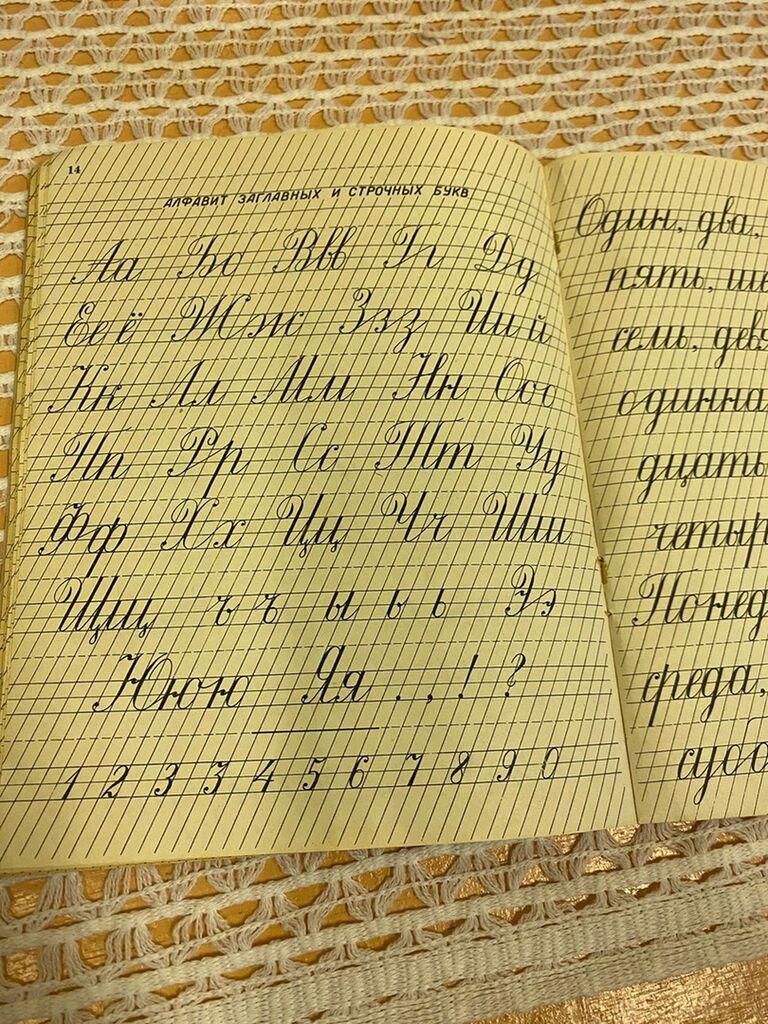 14
АЛФАВИТ ЗАГЛАВНЫХ И СТРОЧНЫХ БУКВ
Аа Бб Ввв Гг Дд
Ееё Жж Ззз Ии й
Кк Лл Мм Нн Ооо
Пп Рр Сс Тт Уу
Фф Хх Цц Чч Шш
Щщ ъ ъ ы ь ь Ээ
Ююю Яя . , ! ?
1 2 3 3 4 5 6 7 8 9 0
Один, два,
пять,
семь,
одинна
дцать
четыр
Понед
среда,
субб